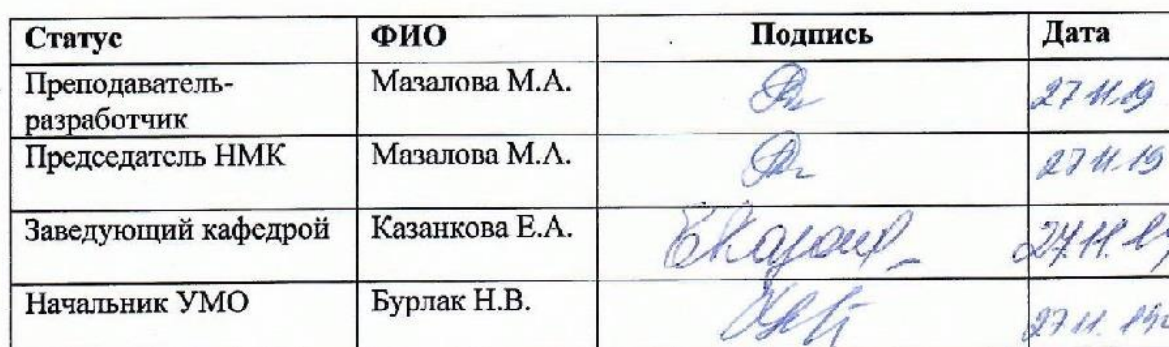 Статус ФИО Подпись Дата
Преподаватель- Мазалова М.А. 27.11.19
разработчик
Председатель НМК Мазалова М.А. 27.11.19
Заведующий кафедрой Казанкова Е.А. 27.11.19
Начальник УМО Бурлак Н.В. 27.11.19